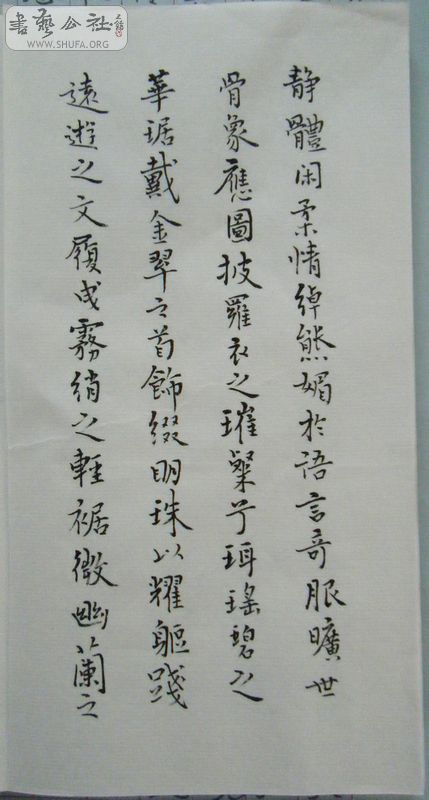 書藝公社
WWW.SHUFA.ORG
静體闲柔情綽態媚於語言奇服曠世
骨象應圖披羅衣之璀粲兮珥瑤碧之
華琚戴金翠之首飾綴明珠以耀軀踐
遠遊之文履曳霧綃之輕裾微幽蘭之